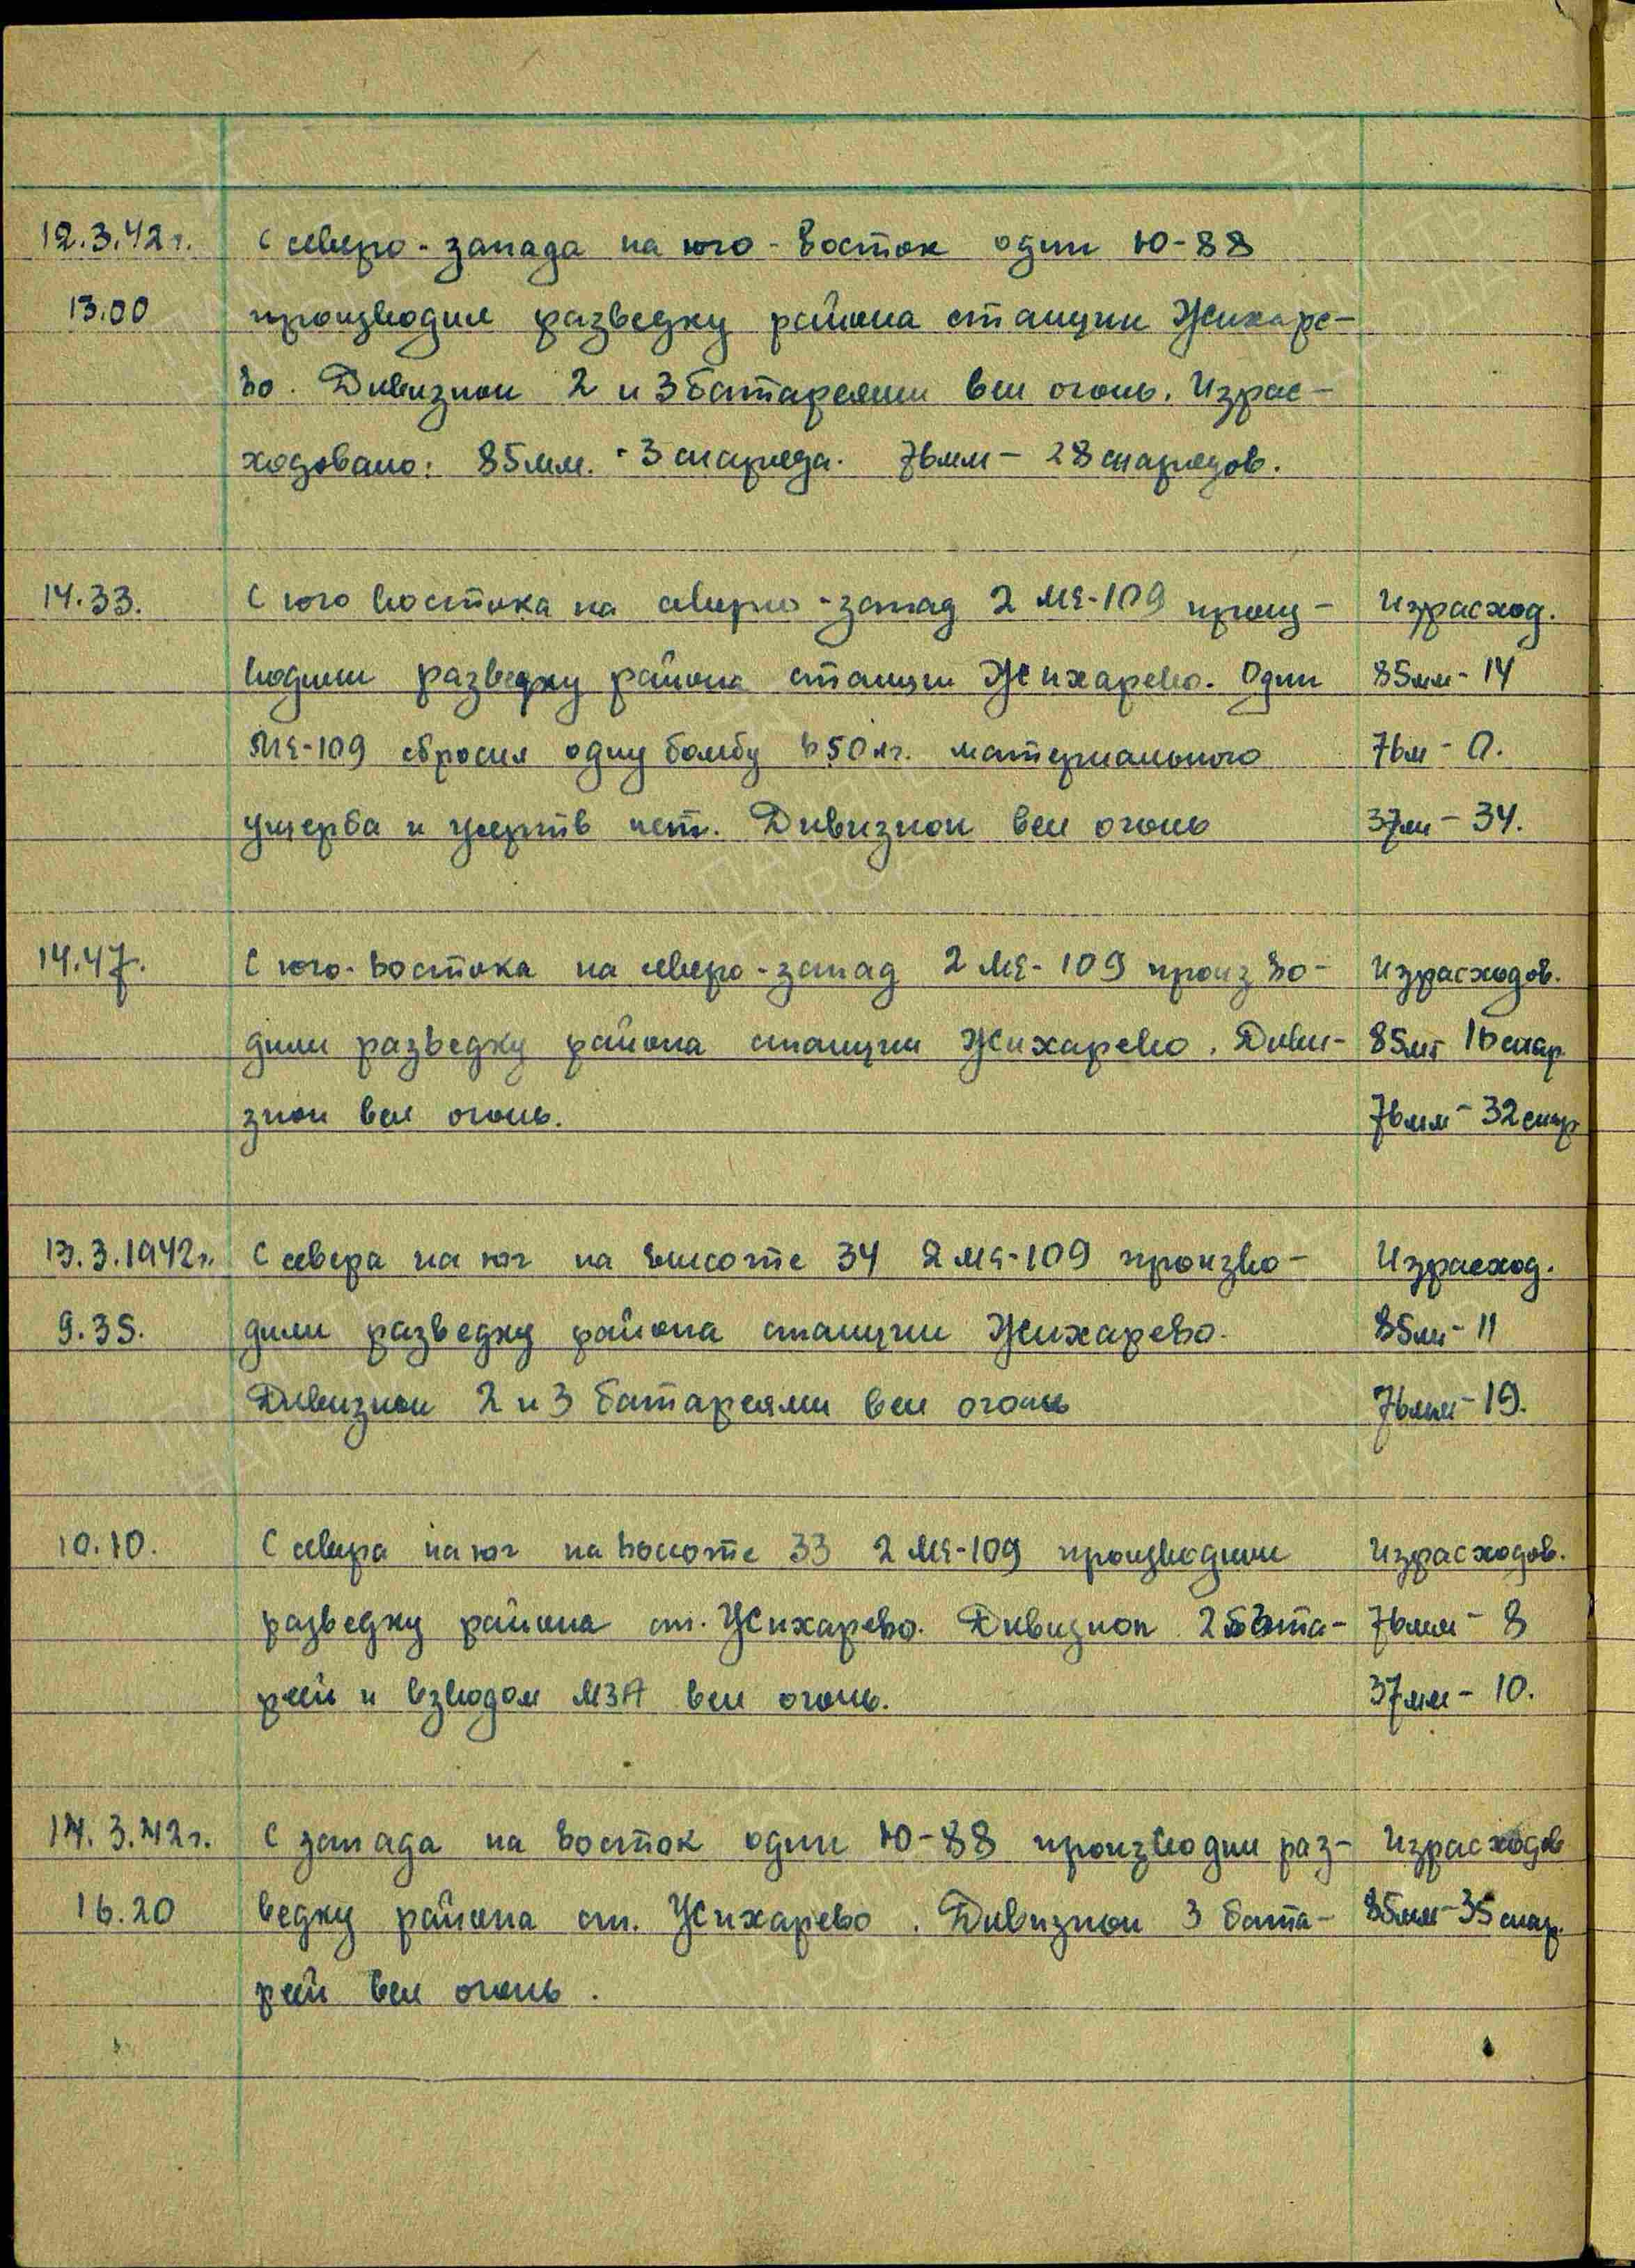 12.3.42г. С северо-запада на юго-восток один Ю-88
13.00 производил разведку района станции Жихаре-
во. Дивизион 2 и 3 батареями вел огонь. Израс-
ходовано: 85мм. - 3 снаряда. 76мм - 28 снарядов.
14.33. С юго востока на северо-запад 2 МЕ-109 произ- Израсход.
водили разведку района станции Жихарево. Один 85мм - 14
МЕ-109 сбросил одну бомбу в 50 кг. материального 76м - 0.
ущерба и жертв нет. Дивизион вел огонь 37мм - 34.
14.47. С юго-востока на северо-запад 2 МЕ-109 произво- Израсходов.
дили разведку района станции Жихарево. Диви- 85мм 16 снар
зион вел огонь. 76мм - 32 снар
13.3.1942г. С севера на юг на высоте 34 2 МЕ-109 произво- Израсход.
9.35. дили разведку района станции Жихарево. 85мм - 11
Дивизион 2 и 3 батареями вел огонь 76мм - 19.
10.10. С севера на юг на высоте 33 2 МЕ-109 производили Израсходов.
разведку района ст. Жихарево. Дивизион 2 бата- 76мм - 8
реей и взводом МЗА вел огонь. 37мм - 10.
14.3.42г. С запада на восток один Ю-88 производил раз- Израсходов
16.20 ведку района ст. Жихарево. Дивизион 3 бата- 85мм - 35 снар.
реей вел огонь.
ПАМЯТЬ
НАРОДА